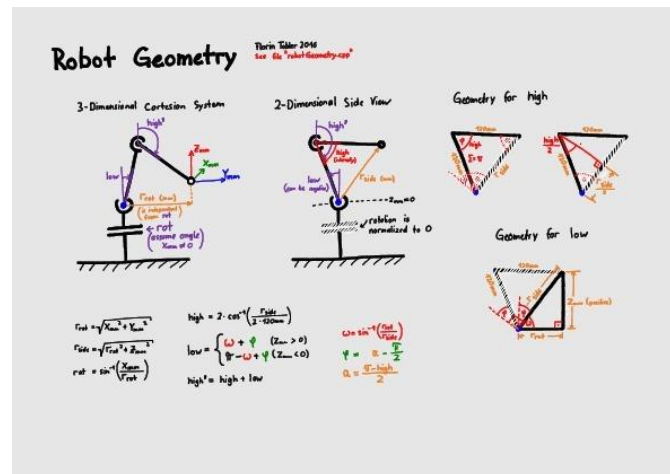 Robot Geometry
Florin Tobler 2016
see file "robotGeometry.cpp"
3-Dimensional Cartesian System
high²
low
Zmm
Xmm
Ymm
rrot (mm)
(is independent from rot)
rot
(assume angle)
Xmm ≠ 0
2-Dimensional Side View
high²
high
low
(can be negative)
rside (mm)
Zmm=0
rotation is
normalized to 0
Geometry for high
120mm
high
120mm
rside
120mm
high/2
120mm
rside/2
Geometry for low
120mm
120mm
rside
Zmm (positive)
rrot
rrot = √(Xmm² + Ymm²)
rside = √(rrot² + Zmm²)
rot = sin⁻¹(Xmm/rrot)
high = 2 · cos⁻¹(rside/(2 · 120mm))
low = { ω + φ (Zmm > 0)
π - ω + φ (Zmm < 0)
high² = high + low
ω = sin⁻¹(rrot/rside)
φ = α - π/2
α = (π - high)/2